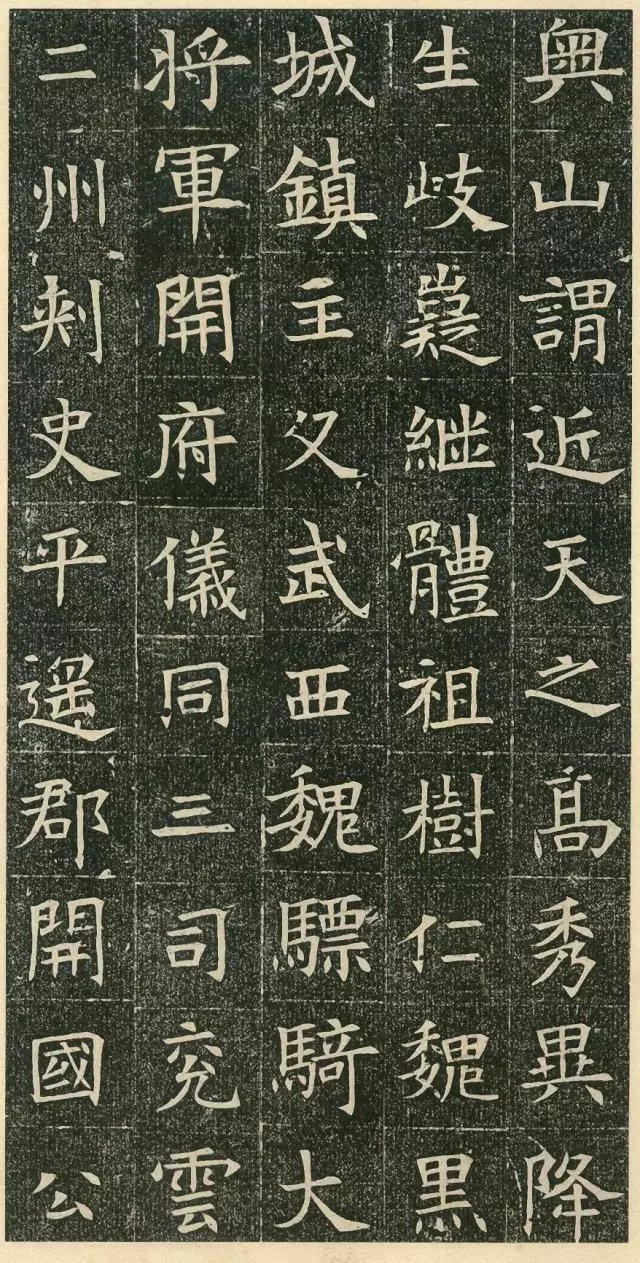 奧山謂近天之髙秀異降
生歧嶷継體祖樹仁魏黑
城鎮主父武西魏驃騎大
将軍開府儀同三司兖雲
二州刺史平遥郡開國公